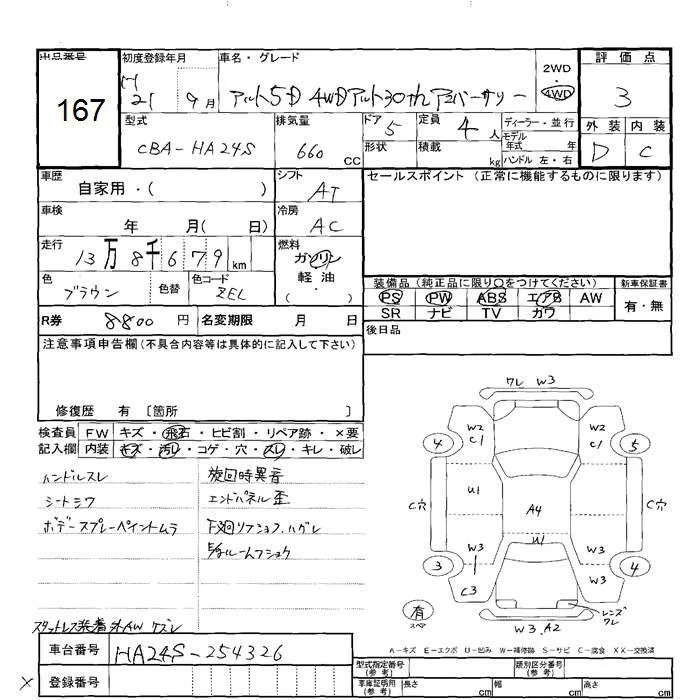 出品番号
167
初度登録年月
H
21 9月
車名・グレード
アルト5D 4WDアルト30thアニバーサリー
2WD
・
4WD
評価点
3
外装 内装
D C
型式
CBA-HA24S
排気量
660 CC
ドア 5
形状
定員 4 人
積載 kg
ディーラー・並行
モデル
年式 年
ハンドル 左・右
車歴
自家用・( )
シフト
AT
車検
年 月( 日)
冷房
AC
走行
13万8千679km
燃料
ガソリン
軽油
( )
色
ブラウン
色替
色コード
ZEL
R券 8800円
名変期限 月 日
セールスポイント(正常に機能するものに限ります)
装備品(純正品に限り○をつけてください)
PS PW ABS エアB AW
SR ナビ TV カワ
新車保証書
有・無
後日品
注意事項申告欄(不具合内容等は具体的に記入して下さい)
修復歴 有 〔箇所 〕
検査員 FW キズ・飛石・ヒビ割・リペア跡・×要
記入欄 内装 キズ・汚レ・コゲ・穴・スレ・キレ・破レ
ハンドルスレ
シートシワ
ボデースプレーペイントムラ
旋回時異音
エンドパネル歪
下廻リフショク、ハゲレ
スタットレス装着 外AW ケズレ
ワレ W3
W2
C1
W2
C1
4
5
C穴
U1
A4
C穴
W3
U1
W3
3
C3
W3
4
有
スペア
レンズ
ワレ
W3.A2
A-キズ E-エクボ U-凹み W-補修跡 S-サビ C-腐食 XX-交換済
車台番号 HA24S-254326
× 登録番号
型式指定番号
(参考)
類別区分番号
(参考)
車庫証明用
(参考)
長さ cm 幅 cm 高さ cm